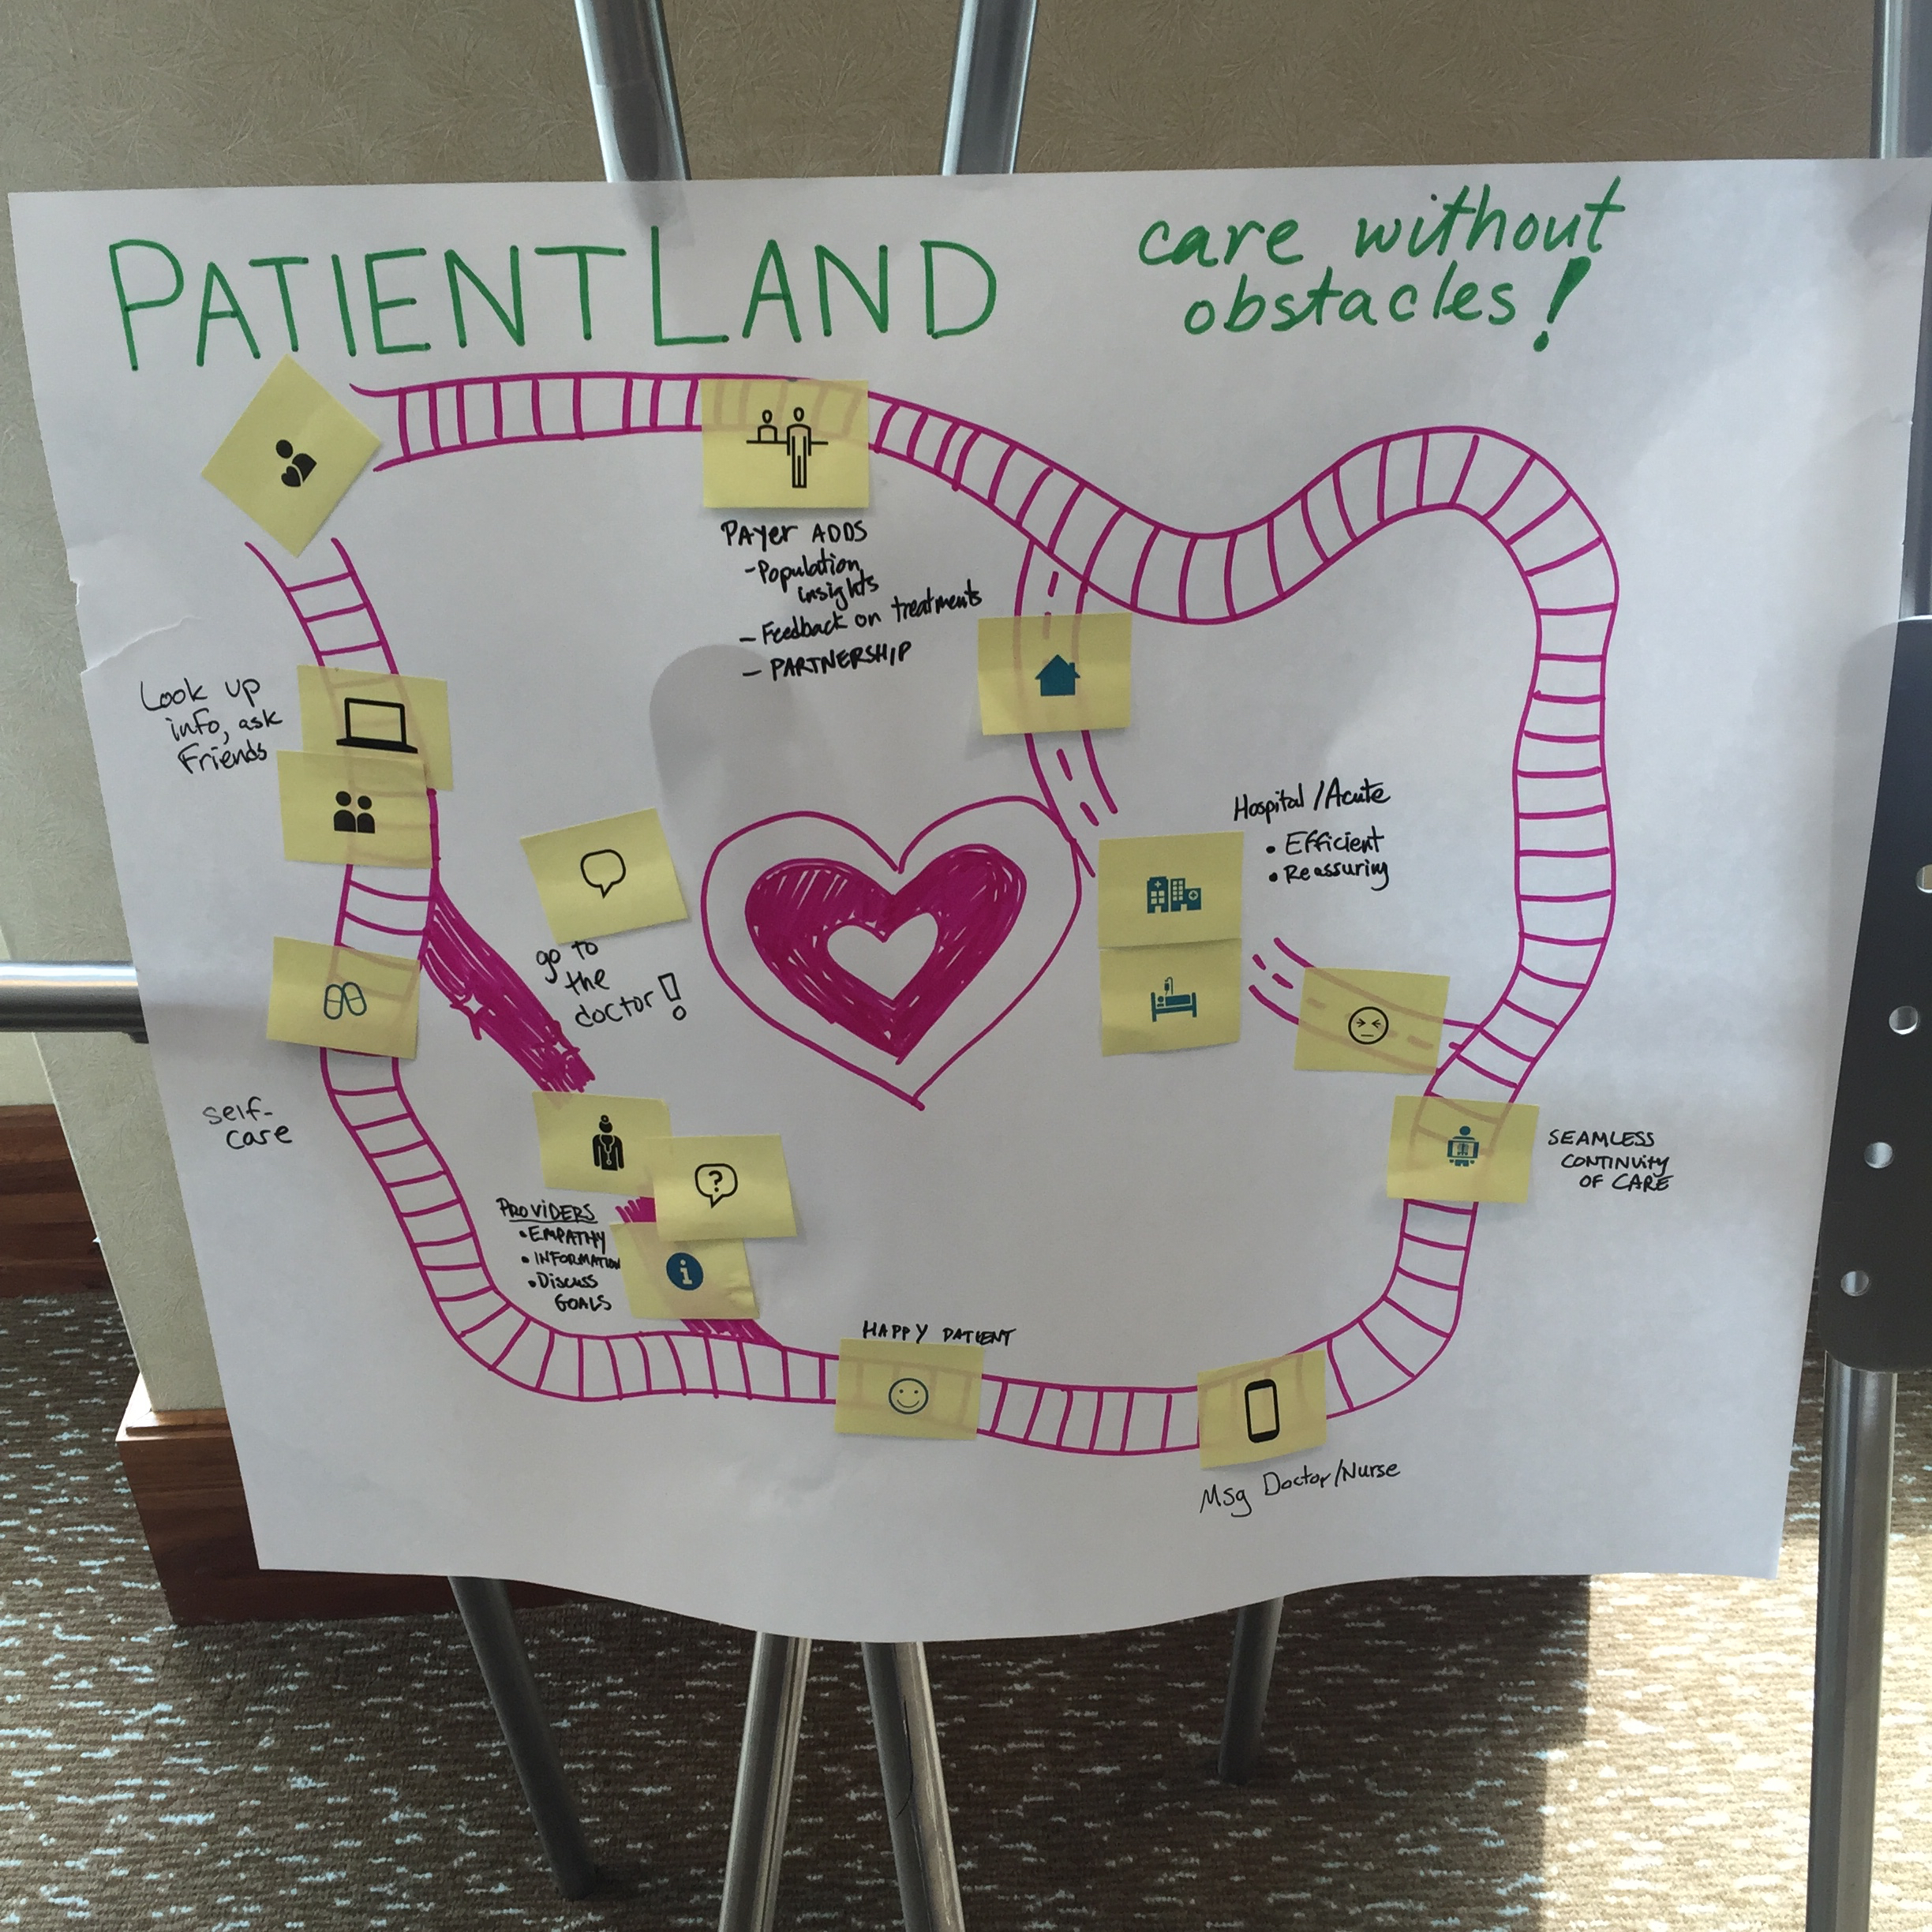 PATIENTLAND
care without
obstacles!
Payer ADDS
- Population
insights
- Feedback on treatments
- PARTNERSHIP
Look up
info, ask
Friends
Hospital / Acute
• Efficient
• Reassuring
go to
the
doctor!
self-
care
?
PROVIDERS
• EMPATHY
• INFORMATION
• Discuss
GOALS
i
SEAMLESS
CONTINUITY
OF CARE
HAPPY PATIENT
Msg Doctor/Nurse